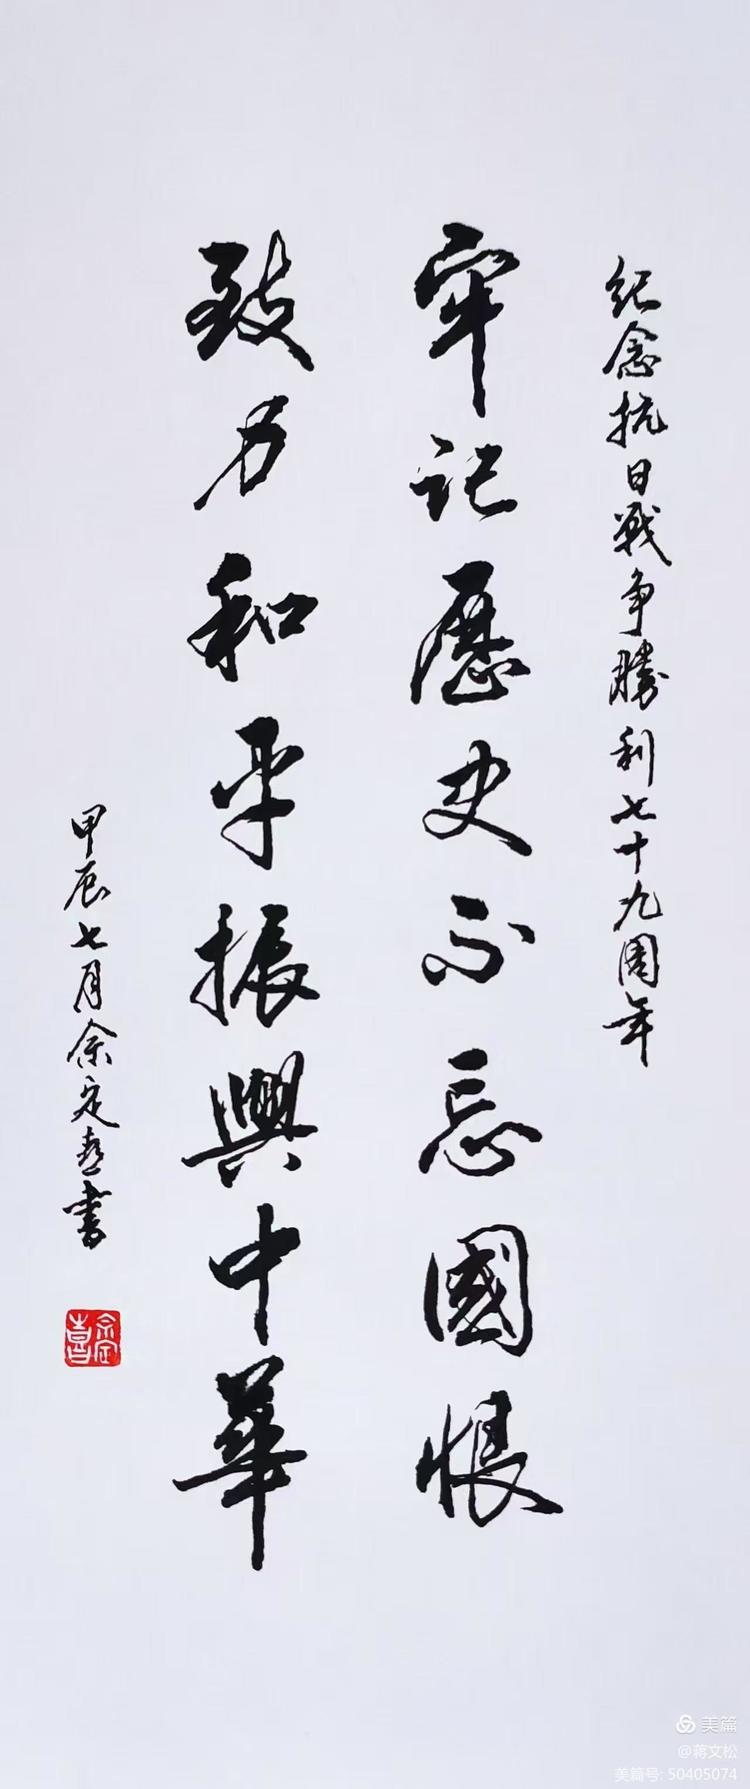 纪念抗日戰争勝利七十九周年
牢记歷史不忘國恨
致力和平振興中華
甲辰七月余定喜書
余定喜
美篇
@蒋文松
美篇号: 50405074